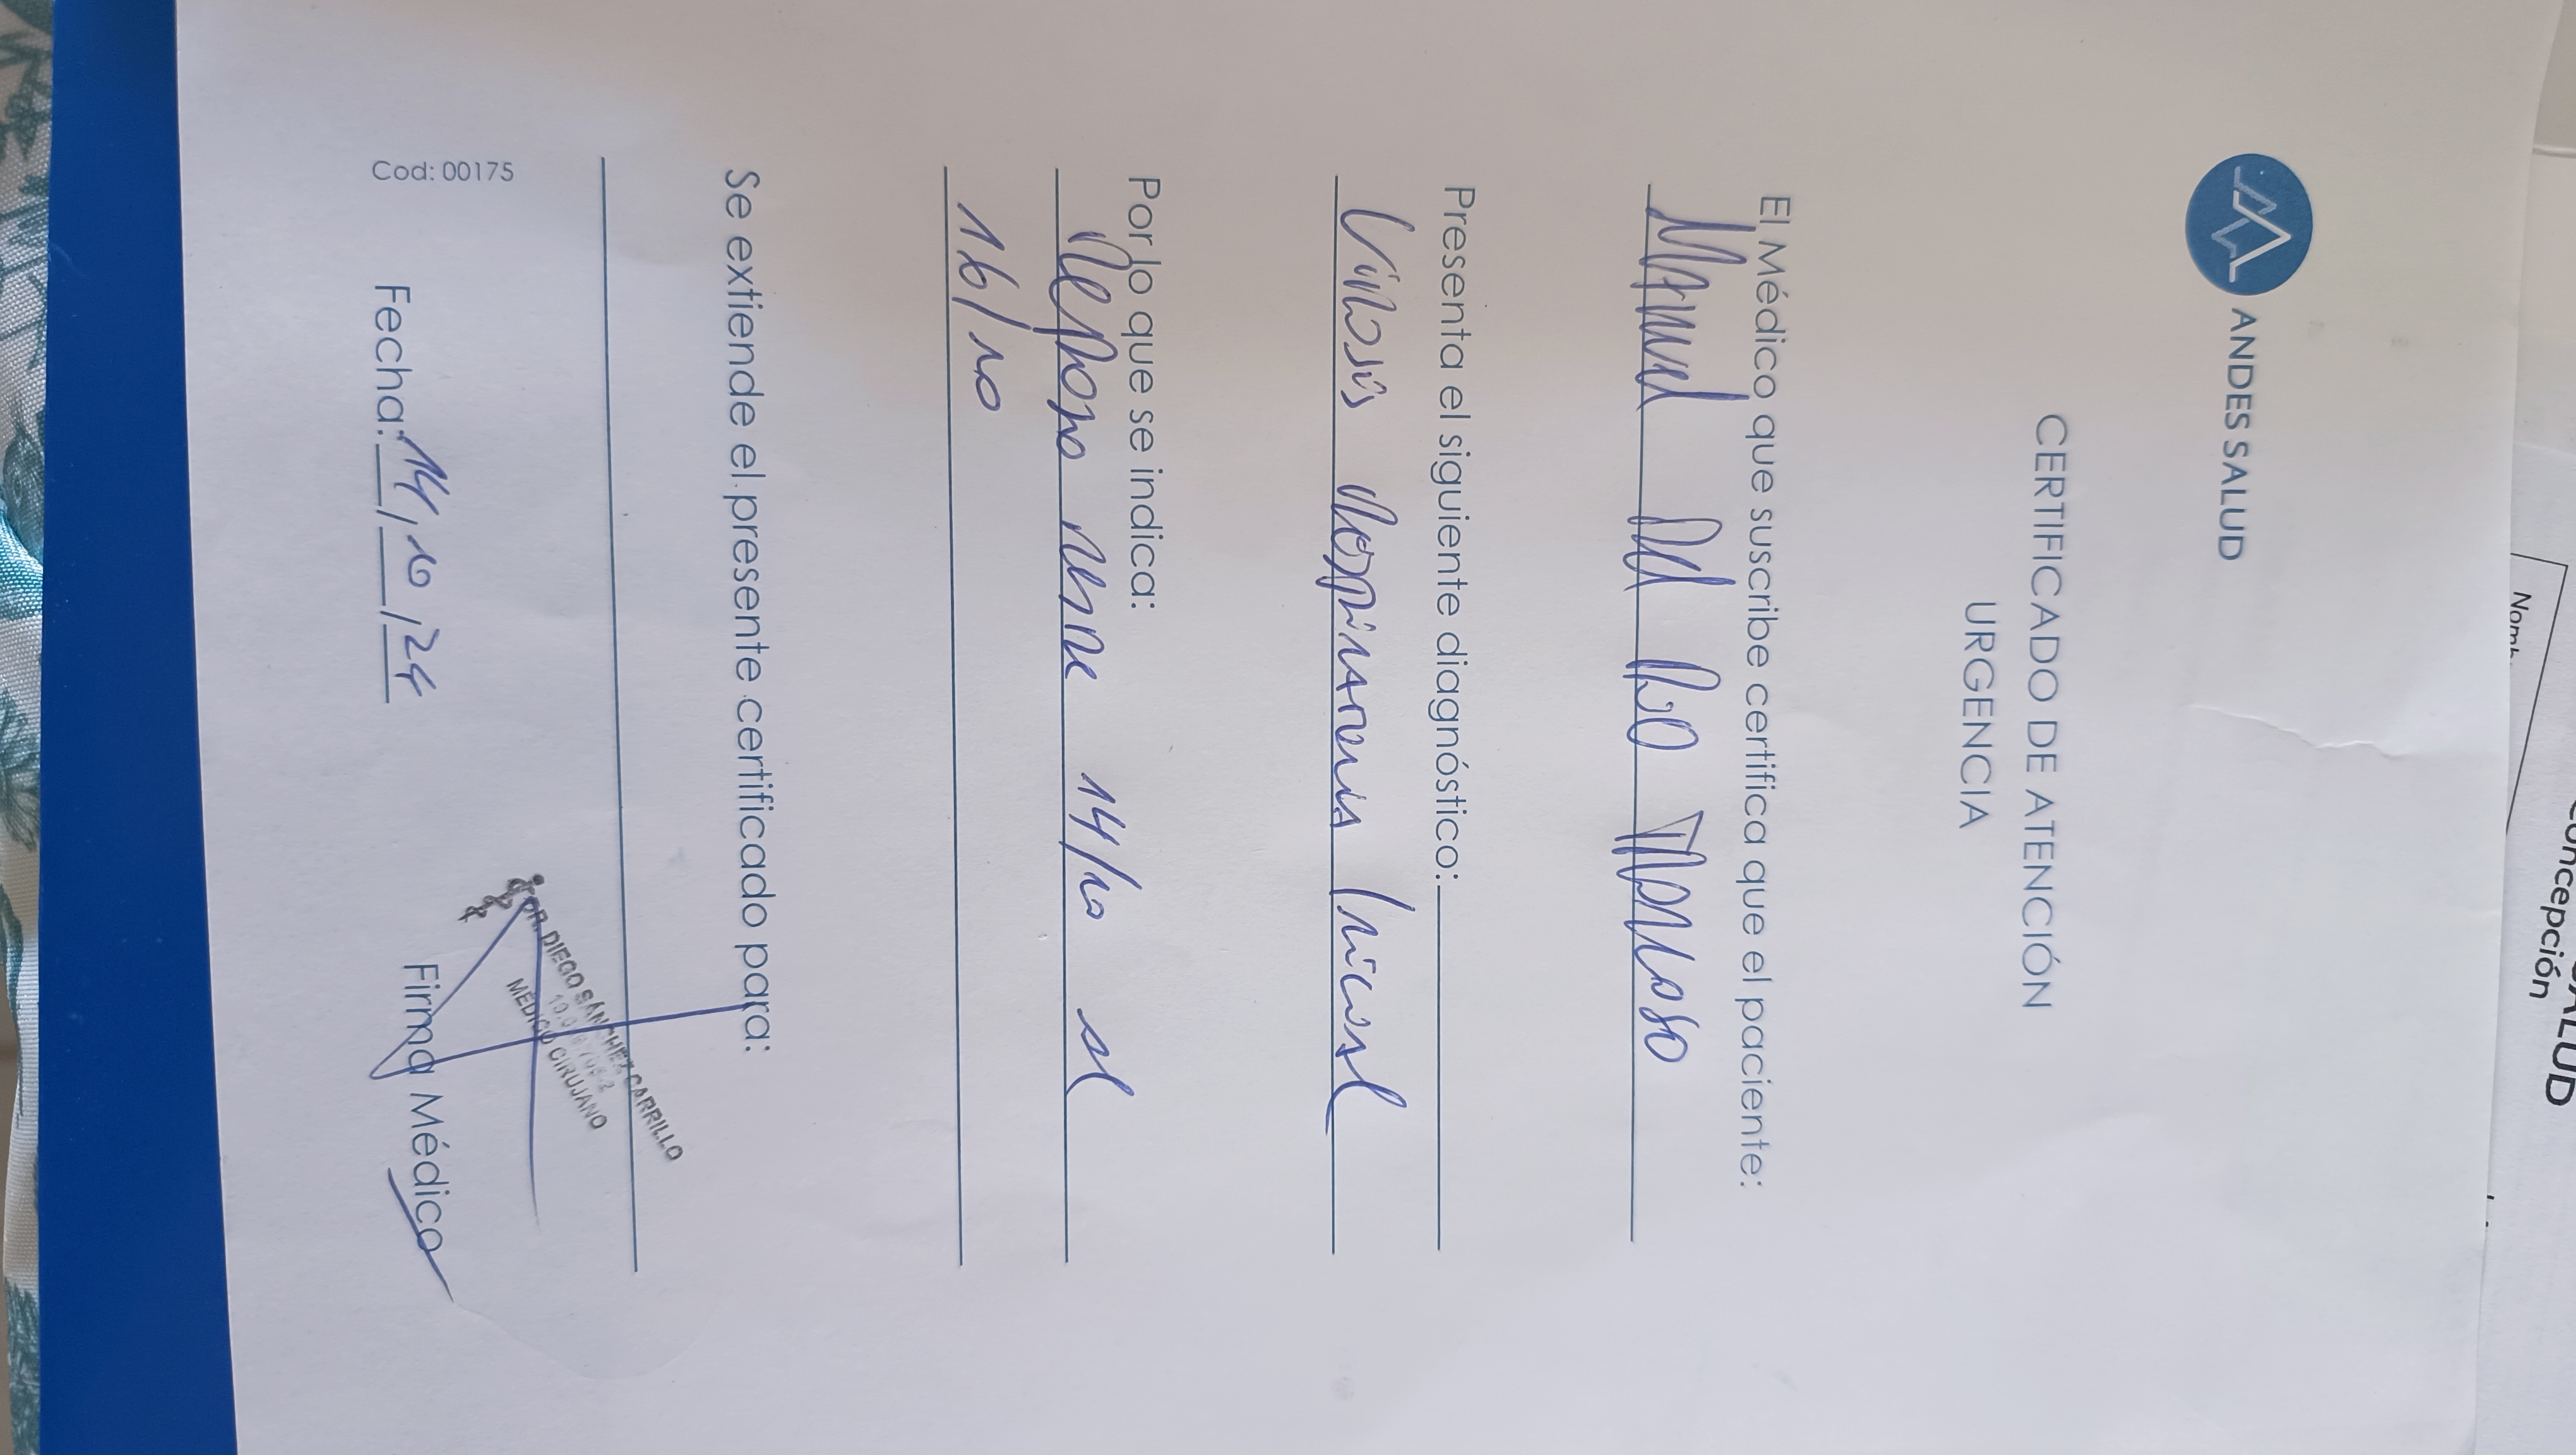 ANDES SALUD
CERTIFICADO DE ATENCIÓN
URGENCIA
El Médico que suscribe certifica que el paciente:
Manuel Del Rio
Presenta el siguiente diagnóstico:
Virosis Respiratoria Inicial
Por lo que se indica:
Reposo desde 14/10 al
16/10
Se extiende el presente certificado para:
DR. DIEGO SÁNCHEZ CARRILLO
MÉDICO CIRUJANO
Fecha: 14/10/24
Firma Médico
Cod: 00175
Nomb
SALUD
Concepción